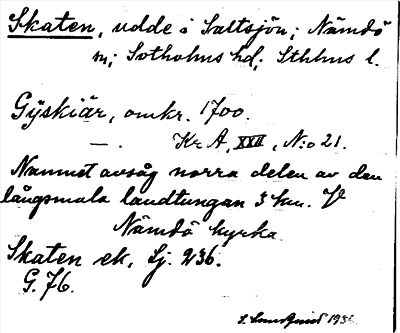 Skaten, udde i Saltsjön; Nämdö
m; Sotholms hd; Sthlms l.
Gÿskiär, omkr. 1700.
—. Kr A, XXII, N:o 21.
Namnet avsåg norra delen av den
långsmala landtungan 3 km. V
Nämdö kyrka.
Skaten ek, Lj. 236.
G. 76.
S. Landquist 193